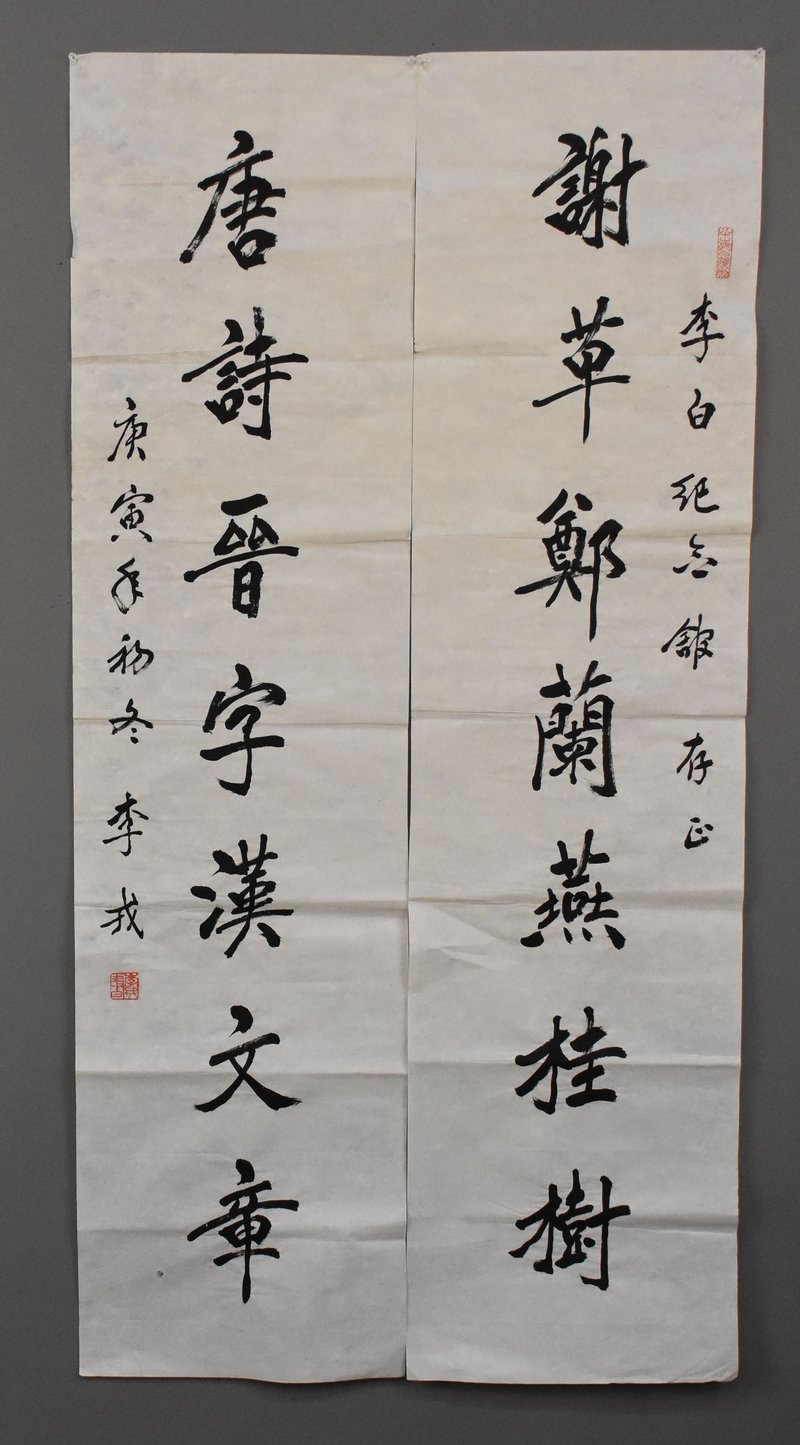 李白纪念馆 存正
謝草鄭蘭燕桂樹
唐詩晉字漢文章
庚寅年初冬 李戎